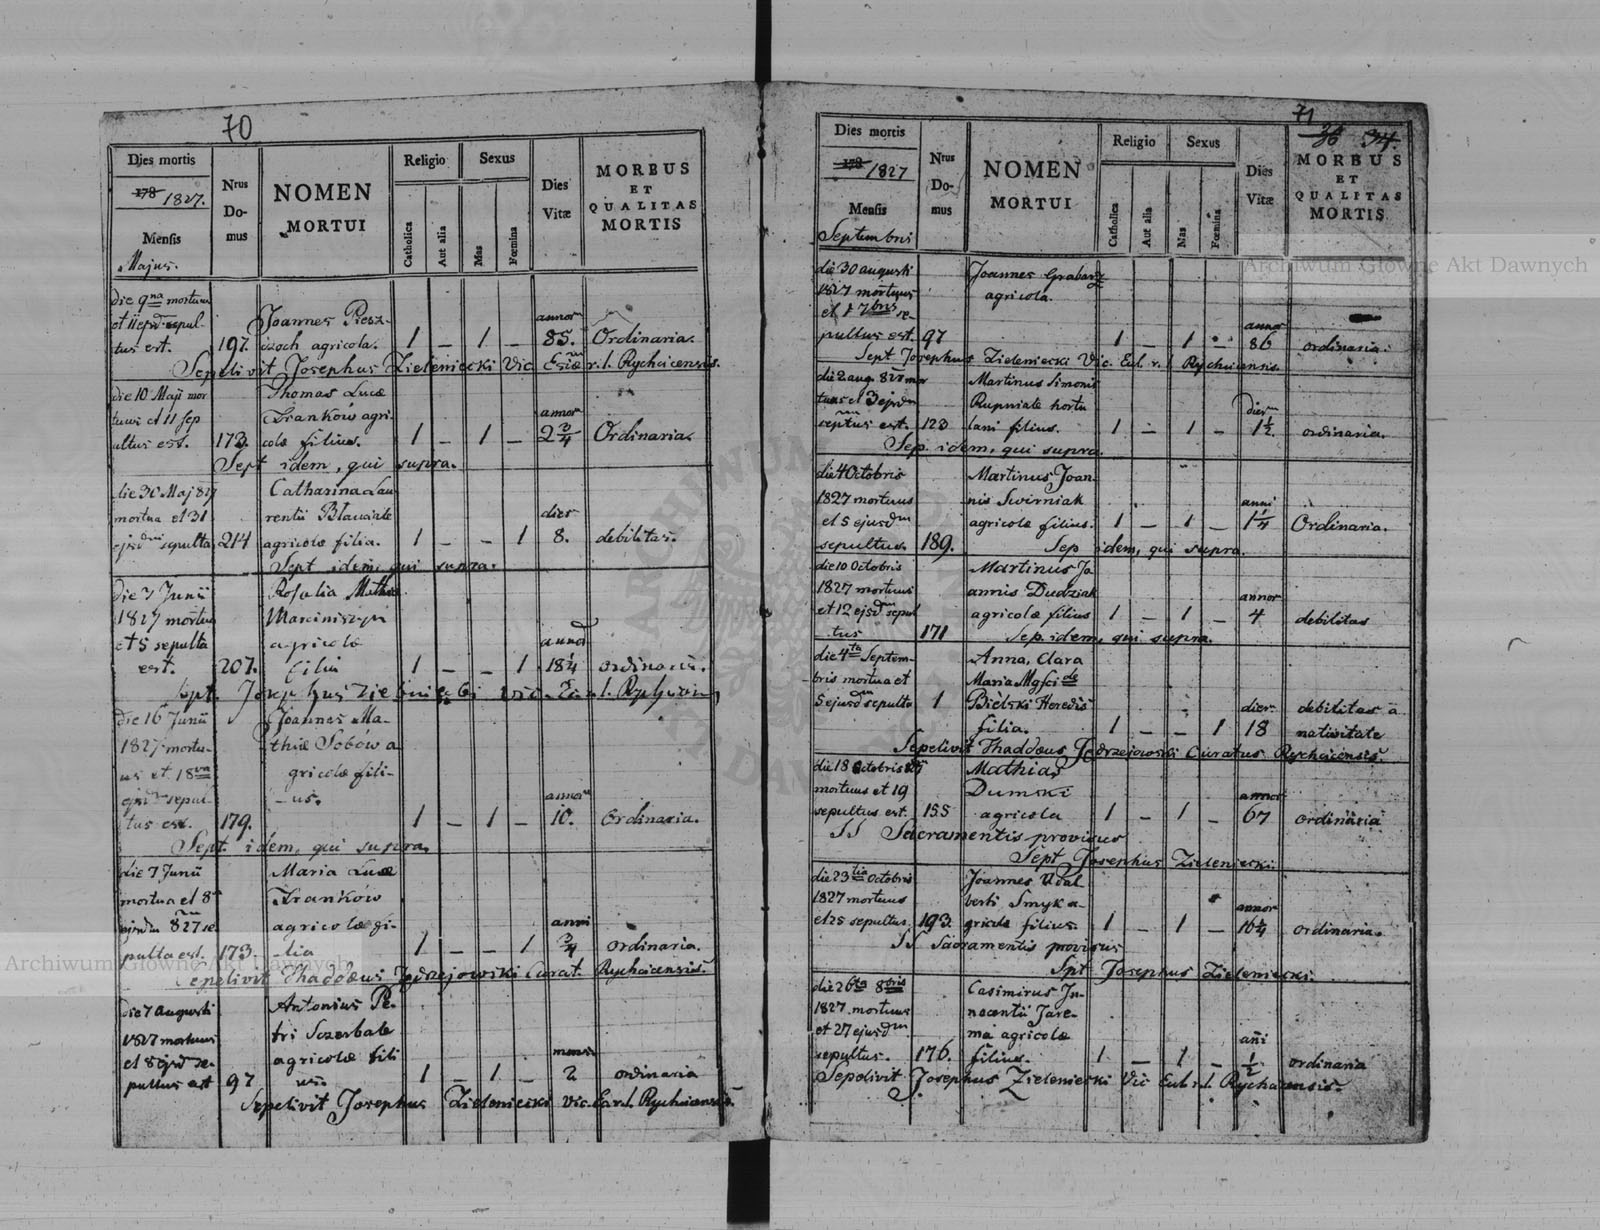 70
Dies mortis
178 1827.
Mensis
Majus.
Nrus
Do-
mus
NOMEN
MORTUI
Religio
Catholica
Aut alia
Sexus
Mas
Fœmina
Dies
Vitæ
MORBUS
ET
QUALITAS
MORTIS
die 9na mortuus
et 11 ejsd sepul-
tus est. 197.
Joannes Piesz-
czoch agricola. 1 – 1 – annor 85. Ordinaria.
Sepelivit Josephus Zieleniecki Vic r. l. Rychcicensis.
die 10 Maji mor
tuus et 11 sep
ultus est. 173.
Thomas Lucæ
Franków agri-
colæ filius. 1 – 1 – annor 2 3/4 Ordinaria.
Sept idem, qui supra.
die 30 Maj 827
mortua et 31
ejsdm sepulta 214
Catharina Lau
rentii
agricolæ filia. 1 – – 1 dier 8. debilitas.
Sept idem, qui supra.
die 3 Junii
1827 mortua
et 5 sepulta
est. 207.
Rosalia Mathæ
agricolæ
filia 1 – – 1 18 1/4 ordinaria.
Sept. Josephus Zieleniecki Vic. r. l. Rychcicen
die 16 Junii
1827 mortu-
us et 18va
ejsdm sepul
tus est. 179.
Joannes Ma-
thiæ Sobów a
gricolæ fili-
us. 1 – 1 – annor 10. Ordinaria.
Sept. idem, qui supra.
die 7 Junii
mortua et 8
ejusdm 827 se
pulta est. 173.
Maria Lucæ
Franków
agricolæ fi-
lia 1 – – 1 anni 3/4 ordinaria.
Sepelivit Thaddæus Jędrzejowski Curat. Rychcicensis.
die 7 augusti
1827 mortuus
et 8 ejsd se-
pultus est 97
Antonius Pe-
tri Sczerbate
agricolæ fili
us 1 – 1 – mens. 2 ordinaria
Sepelivit Josephus Zieleniecki Vic. Rychcicensis.
71
36 34.
Dies mortis
178 1827
Mensis
Septembris
Nrus
Do-
mus
NOMEN
MORTUI
Religio
Catholica
Aut alia
Sexus
Mas
Fœmina
Dies
Vitæ
MORBUS
ET
QUALITAS
MORTIS
die 30 augusti
1827 mortuus
et 1 7bris se-
pultus est. 97
Joannes Grabarz
agricola. 1 – 1 – annor 86 ordinaria.
Sept Josephus Zieleniecki Vic. Eccl. r. l Rychcicensis.
die 2 aug. 827 mor
tuus et 3 ejsdm
est. 123
Martinus Simonis
Rupniate hortu
lani filius. 1 – 1 – dierum 1 1/2. ordinaria.
Sep. idem, qui supra.
die 4 Octobris
1827 mortuus
et 5 ejusdm
sepultus. 189.
Martinus Joan-
nis Swirniak
agricolæ filius. 1 – 1 – anni 1 1/4 Ordinaria.
Sep idem, qui supra.
die 10 Octobris
1827 mortuus
et 12 ejsdm sepul
tus 171
Martinus Jo
annis Dudziak
agricolæ filius 1 – 1 – annor 4 debilitas
Sep. idem, qui supra.
die 4ta Septem-
bris mortua et
5 ejusdm sepulta 1
Anna, Clara
Maria
Bielski Heredis
filia. 1 – – 1 dier. 18 debilitas a
nativitate
Sepelivit Thaddæus Jędrzejowski Curatus Rychcicensis.
die 18 Octobris 827
mortuus et 19
sepultus est. 155
Mathias
Dumski
agricola 1 – 1 – annor 67 ordinaria
SS Sacramentis provisus
Sept Josephus Zieleniecki.
die 23tia Octobris
1827 mortuus
et 25 sepultus. 193.
Joannes Udal
berti Smyk a-
gricolæ filius. 1 – 1 – annor 16 1/4 ordinaria.
SS Sacramentis provisus
Spt Josephus Zieleniecki.
die 26ta 8bris
1827 mortuus
et 27 ejusdm
sepultus. 176.
Casimirus In-
nocentii Jare-
ma agricolæ
filius. 1 – 1 – añi 1/2 ordinaria
Sepelivit Josephus Zieleniecki Vic Eccl. r. l. Rychcicensis.
Archiwum Główne Akt Dawnych
Archiwum Główne Akt Dawnych